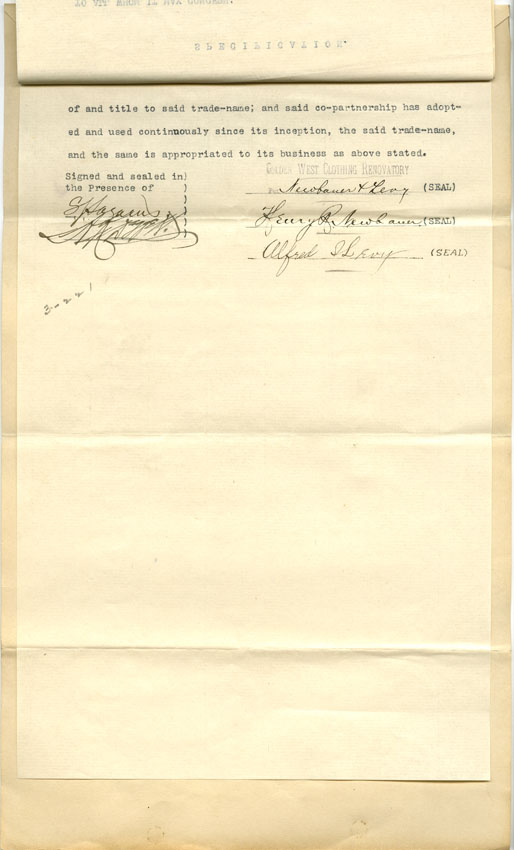 TO ALL WHOM IT MAY CONCERN:
SPECIFICATION.
of and title to said trade-name; and said co-partnership has adopt-
ed and used continuously since its inception, the said trade-name,
and the same is appropriated to its business as above stated.
Signed and sealed in)
the Presence of )
GOLDEN WEST CLOTHING RENOVATORY
Newbauer & Levy (SEAL)
Henry R. Newbauer (SEAL)
Alfred I Levy (SEAL)
3-221